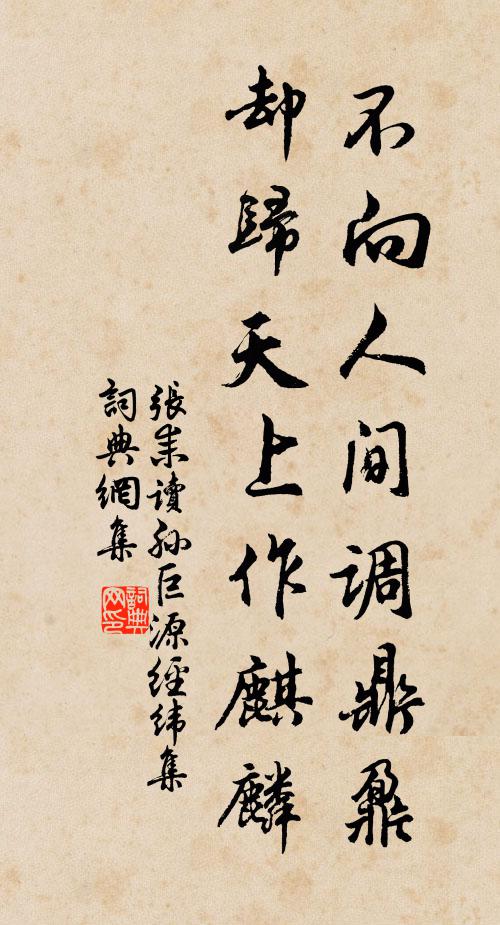 不向人间调鼎鼐
却歸天上作麒麟
張耒讀孙巨源經緯集
詞典網集
詞典网印